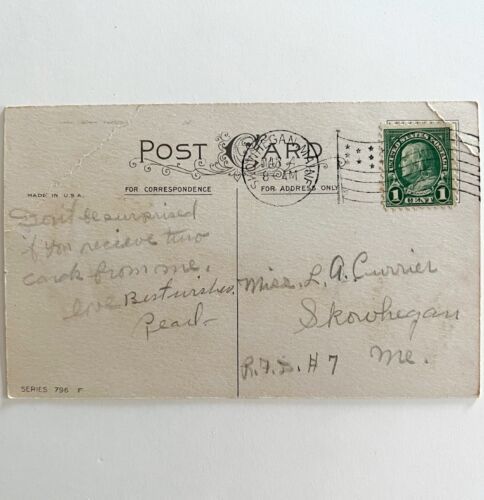 POST CARD
SKOWHEGAN, MAINE
8 AM
UNITED STATES POSTAGE
1 1
CENT
MADE IN U.S.A.
FOR CORRESPONDENCE
FOR ADDRESS ONLY
Don't be surprised
if you recieve two
cards from me.
love Best wishes
Pearl
Miss. L. A. Currier
Skowhegan
Me.
R.F.D. #7
SERIES 796 F